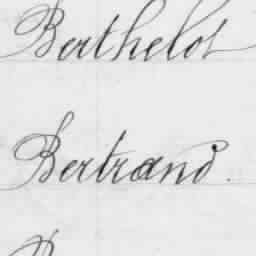 Berthelot
Bertrand.